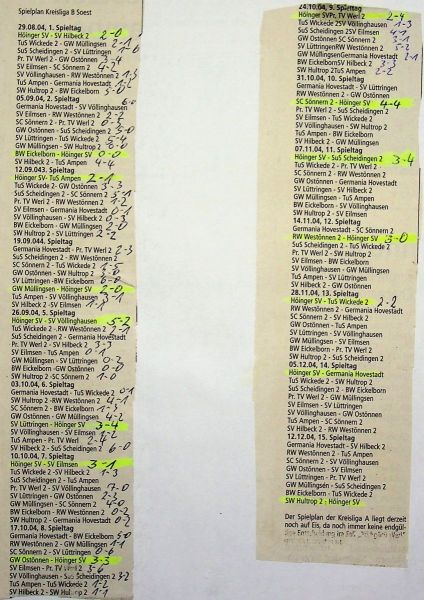 Spielplan Kreisliga B Soest
29.08.04, 1. Spieltag
Höinger SV - SV Hilbeck 2 2-0
TuS Wickede 2 - GW Müllingsen
SuS Scheidingen 2 - SV Lüttringen
Pr. TV Werl 2 - GW Ostönnen 3-4
SV Eilmsen - SC Sönnern 2
SV Völlinghausen - RW Westönnen 2
TuS Ampen - Germania Hovestadt
SW Hultrop 2 - BW Eickelborn
05.09.04, 2. Spieltag
Germania Hovestadt - SV Völlinghausen
SV Eilmsen - RW Westönnen 2
SC Sönnern 2 - Pr. TV Werl 2
GW Ostönnen - SuS Scheidingen 2
SV Lüttringen - TuS Wickede 2
GW Müllingsen - SW Hultrop 2
BW Eickelborn - Höinger SV 0-0
SV Hilbeck 2 - TuS Ampen 4-4
12.09.043. Spieltag
Höinger SV- TuS Ampen 2-1
TuS Wickede 2 - GW Ostönnen 3-3
SuS Scheidingen 2 - SC Sönnern 2
Pr. TV Werl 2 - RW Westönnen 2
SV Eilmsen - Germania Hovestadt 0-1
SV Völlinghausen - SV Hilbeck 2 0-3
BW Eickelborn - GW Müllingsen
SW Hultrop 2 - SV Lüttringen
19.09.044. Spieltag
Germania Hovestadt - Pr. TV Werl 2 2-3
SuS Scheidingen 2 - RW Westönnen 2
SC Sönnern 2 - TuS Wickede 2
GW Ostönnen - SW Hultrop 2
SV Lüttringen -BW Eickelborn
GW Müllingsen - Höinger SV 2-0
TuS Ampen - SV Völlinghausen 3-1
SV Hilbeck 2 - SV Eilmsen
26.09.04, 5. Spieltag
Höinger SV - SV Völlinghausen 5-2
TuS Wickede 2 -RW Westönnen 2
Pr. TV Werl 2 - SV Hilbeck 2 3-3
SV Eilmsen - TuS Ampen 0-1
SV Lüttringen - GW Müllingsen
BW Eickelborn -GW Ostönnen 0-0
SW Hultrop 2 -SC Sönnern 2 1-0
03.10.04, 6. Spieltag
Germania Hovestadt - TuS Wickede 2 0-1
SW Hultrop 2 -RW Westönnen 2 4-1
SC Sönnern 2 - BW Eickelborn 1-3
GW Ostönnen - GW Müllingsen 4-2
SV Lüttringen - Höinger SV 3-4
SV Völlinghausen - SV Eilmsen
TuS Ampen - Pr. TV Werl 2-4
SV Hilbeck 2 - SuS Scheidingen 2 6-0
10.10.04, 7. Spieltag
Höinger SV - SV Eilmsen 3-1
TuS Wickede 2 -SV Hilbeck 2 1-3
SuS Scheidingen 2 - TuS Ampen
Pr. TV Werl 2 - SV Völlinghausen 7-0
SV Lüttringen - GW Ostönnen 2-3
GW Müllingsen - SC Sönnern 2
BW Eickelborn - RW Westönnen 2 0-2
SW Hultrop 2 - Germania Hovestadt 0-2
17.10.04, 8. Spieltag
Germania Hovestadt - BW Eickelborn 5-0
RW Westönnen 2 - GW Müllingsen
SC Sönnern 2 - SV Lüttringen 0-6
GW Ostönnen - Höinger SV 3-3
SV Eilmsen - Pr. TV Werl 2 3-6
SV Völlinghausen - SuS Scheidingen 2
TuS Ampen - TuS Wickede 2 1-1
SV Hilbeck 2 - SW Hultrop 2 1-1
24.10.04, 9. Spieltag
Höinger SVPr. TV Werl 2 2-4
TuS Wickede 2SV Völlinghausen 1-3
SuS Scheidingen 2SV Eilmsen 4-1
GW Ostönnen SC Sönnern 2
SV LüttringenRW Westönnen 2 5-2
GW MüllingsenGermania Hovestadt 2-1
BW EickelbornSV Hilbeck 2 3-3
SW Hultrop 2TuS Ampen 2-2
31.10.04, 10. Spieltag
Germania Hovestadt - SV Lüttringen
SC Sönnern 2 - Höinger SV 4-4
SV Eilmsen - TuS Wickede 2
SV Völlinghausen - SW Hultrop 2
TuS Ampen - BW Eickelborn
SV Hilbeck 2 - GW Müllingsen
07.11.04, 11. Spieltag
Höinger SV - SuS Scheidingen 2 3-4
TuS Wickede 2 - Pr. TV Werl 2
SC Sönnern 2 - RW Westönnen 2
GW Ostönnen - Germania Hovestadt
SV Lüttringen - SV Hilbeck 2
GW Müllingsen - TuS Ampen
BW Eickelborn - SV Völlinghausen
SW Hultrop 2 - SV Eilmsen
14.11.04, 12. Spieltag
Germania Hovestadt - SC Sönnern 2
RW Westönnen 2 - Höinger SV 3-0
SuS Scheidingen 2 - TuS Wickede 2
Pr. TV Werl 2 - SW Hultrop 2
SV Eilmsen - BW Eickelborn
SV Völlinghausen - GW Müllingsen
TuS Ampen - SV Lüttringen
SV Hilbeck 2 - GW Ostönnen
28.11.04, 13. Spieltag
Höinger SV - TuS Wickede 2 2-2
RW Westönnen 2 - Germania Hovestadt
SC Sönnern 2 - SV Hilbeck 2
GW Ostönnen - TuS Ampen
SV Lüttringen - SV Völlinghausen
GW Müllingsen - SV Eilmsen
BW Eickelborn - Pr. TV Werl 2
SW Hultrop 2 - SuS Scheidingen 2
05.12.04, 14. Spieltag
Höinger SV - Germania Hovestadt
TuS Wickede 2 - SW Hultrop 2
SuS Scheidingen 2 - BW Eickelborn
Pr. TV Werl 2 - GW Müllingsen
SV Eilmsen - SV Lüttringen
SV Völlinghausen - GW Ostönnen
TuS Ampen - SC Sönnern 2
SV Hilbeck 2 - RW Westönnen 2
12.12.04, 15. Spieltag
Germania Hovestadt - SV Hilbeck 2
RW Westönnen 2 - TuS Ampen
SC Sönnern 2 - SV Völlinghausen
GW Ostönnen - SV Eilmsen
SV Lüttringen - Pr. TV Werl 2
GW Müllingsen - SuS Scheidingen 2
BW Eickelborn - TuS Wickede 2
SW Hultrop 2 - Höinger SV
Der Spielplan der Kreisliga A liegt derzeit
noch auf Eis, da noch immer keine endgül-